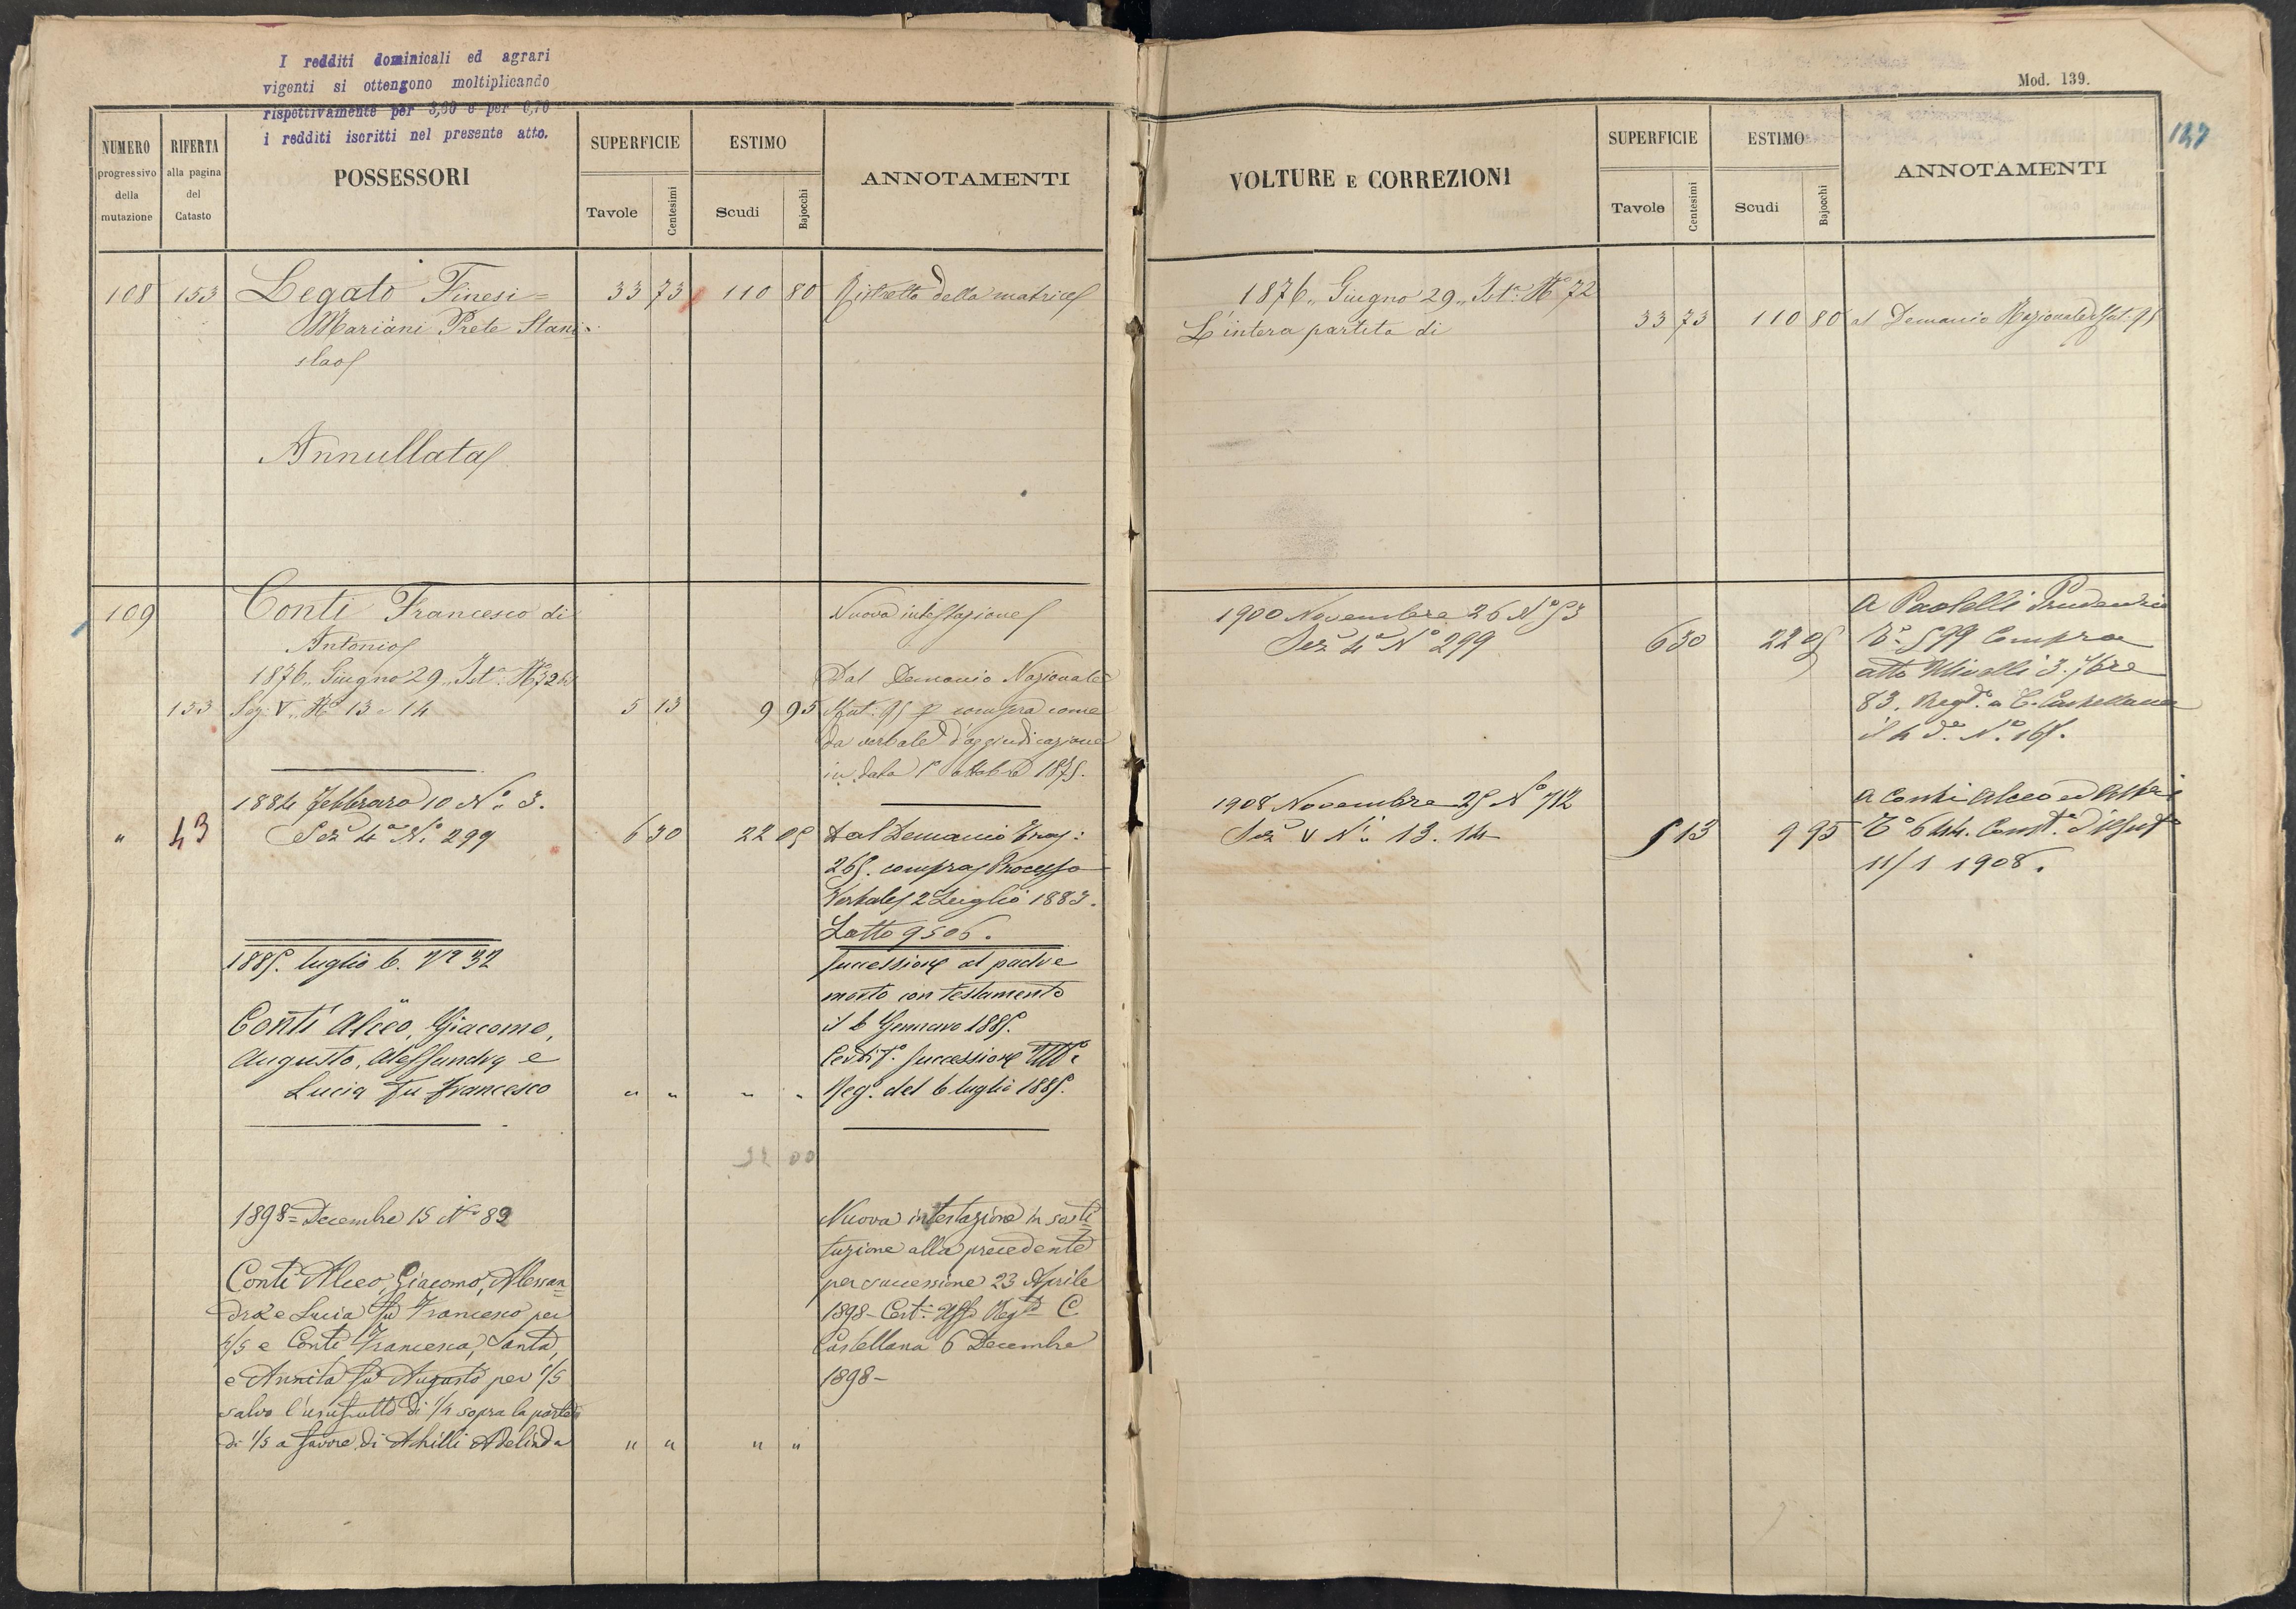 I redditi dominicali ed agrari
vigenti si ottengono moltiplicando
rispettivamente per 3,60 e per 6,70
i redditi iscritti nel presente atto.
NUMERO progressivo della mutazione
RIFERTA alla pagina del Catasto
POSSESSORI
SUPERFICIE
Tavole Centesimi
ESTIMO
Scudi Bajocchi
ANNOTAMENTI
108 153 Legato Finesi= 33 73 110 80 Ristretto della matrice
Mariani Prete Stani=
slao
Annullata
109 Conti Francesco di Nuova intestazione
Antonio
1876 Giugno 29 Ist.a N.o 326 Dal Demanio Nazionale
153 Sez. V. N.o 13 - 14 5 13 9 95 Mat. 95 p compra come
da verbale d'aggiudicazione
in data 1 ottobre 1875.
1884 Febbraro 10 N.o 3.
" 43 Sez 4a N.o 299 6 30 22 05 Dal Demanio
265. compra Processo
Verbale 2 Luglio 1883.
Lotto 9506.
1885. luglio 6. N.o 32 Successione al padre
morto con testamento
Conti Alceo, Giacomo, il 6 Gennaro 1885.
Augusto, Alessandra e Certif.o Successione
Lucia fu Francesco " " " " Reg.o del 6 luglio 1885.
22 00
1898= Decembre 15 N.o 89 Nuova intestazione in sosti=
tuzione alla precedente
Conti Alceo, Giacomo, Alessan= per successione 23 Aprile
dra e Lucia fu Francesco per 1898 - Cert. Uff.o Reg.o C.
4/5 e Conti Francesca, Santa, Castellana 6 Decembre
e Annita fu Augusto per 1/5 1898 -
salvo l'usufrutto di 1/4 sopra la parte
di 1/5 a favore di Achilli Adelinda " " " "
Mod. 139.
147
VOLTURE E CORREZIONI
SUPERFICIE
Tavole Centesimi
ESTIMO
Scudi Bajocchi
ANNOTAMENTI
1876 Giugno 29 Ist.a N.o 72
L'intera partita di 33 73 110 80 al Demanio Nazionale Mat. 95
1900 Novembre 26 N.o 93 A Paolelli Prudenzio
Sez 4a N.o 299 6 30 22 05 T.o 599 Compra
atto 3. 7bre
83. Reg.o a C. Castellana
il 4 d.o N.o 165.
1908 Novembre 25 N.o 712 A Conti Alceo ed Altri
Sez V N.i 13. 14 5 13 9 95 T.o 644. d'Usuf.o
11/1 1908.